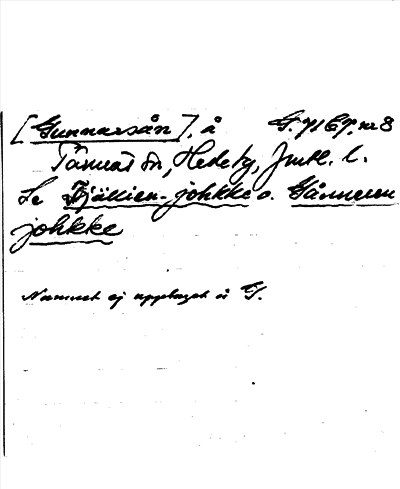 [Gunnarsån], å G. 71 67. nr 8
Tännäs sn, Hede tg, Jmtl. l.
Se Fjällien-johkke o. Gånneren
johkke
Namnet ej upptaget å G.